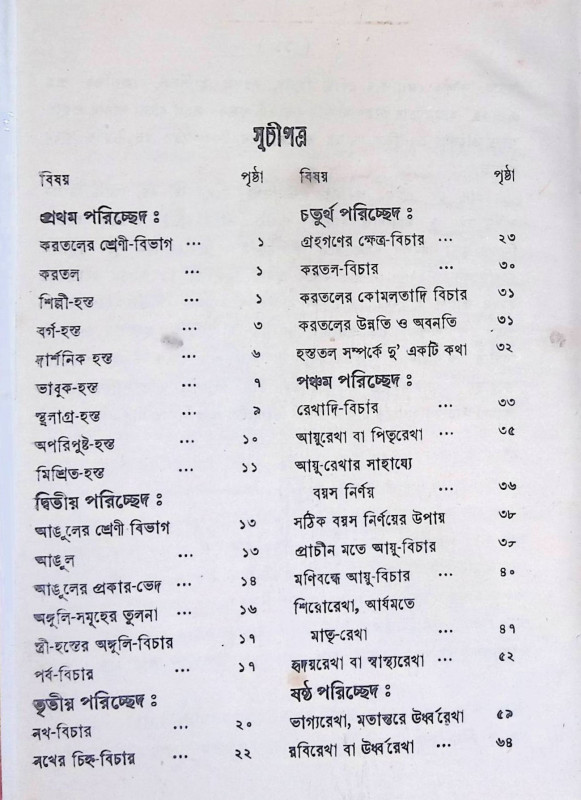 সূচীপত্র
বিষয় পৃষ্ঠা
প্রথম পরিচ্ছেদ :
করতলের শ্রেণী-বিভাগ ... ১
করতল ... ১
শিল্পী-হস্ত ... ১
বর্গ-হস্ত ... ৩
দার্শনিক হস্ত ... ৬
ভাবুক-হস্ত ... ৭
স্থূলাগ্র-হস্ত ... ৯
অপরিপুষ্ট-হস্ত ... ১০
মিশ্রিত-হস্ত ... ১১
দ্বিতীয় পরিচ্ছেদ :
আঙুলের শ্রেণী বিভাগ ১৩
আঙুল ... ১৩
আঙুলের প্রকার-ভেদ ... ১৪
অঙ্গুলি-সমূহের তুলনা ... ১৬
স্ত্রী-হস্তের অঙ্গুলি-বিচার ১৭
পর্ব-বিচার ... ১৭
তৃতীয় পরিচ্ছেদ :
নখ-বিচার ... ২০
নখের চিহ্ন-বিচার ... ২২
বিষয় পৃষ্ঠা
চতুর্থ পরিচ্ছেদ :
গ্রহগণের ক্ষেত্র-বিচার ... ২৩
করতল-বিচার ... ৩০
করতলের কোমলতাদি বিচার ৩১
করতলের উন্নতি ও অবনতি ৩১
হস্ততল সম্পর্কে দু’ একটি কথা ৩২
পঞ্চম পরিচ্ছেদ :
রেখাদি-বিচার ... ৩৩
আয়ুরেখা বা পিতৃরেখা ... ৩৫
আয়ু-রেখার সাহায্যে
বয়স নির্ণয় ... ৩৬
সঠিক বয়স নির্ণয়ের উপায় ৩৮
প্রাচীন মতে আয়ু-বিচার ৩৮
মণিবন্ধে আয়ু-বিচার ... ৪০
শিরোরেখা, আর্যমতে
মাতৃ-রেখা ... ৪৭
হৃদয়রেখা বা স্বাস্থ্যরেখা ... ৫২
ষষ্ঠ পরিচ্ছেদ :
ভাগ্যরেখা, মতান্তরে ঊর্ধ্বরেখা ৫৯
রবিরেখা বা ঊর্ধ্বরেখা ... ৬৪